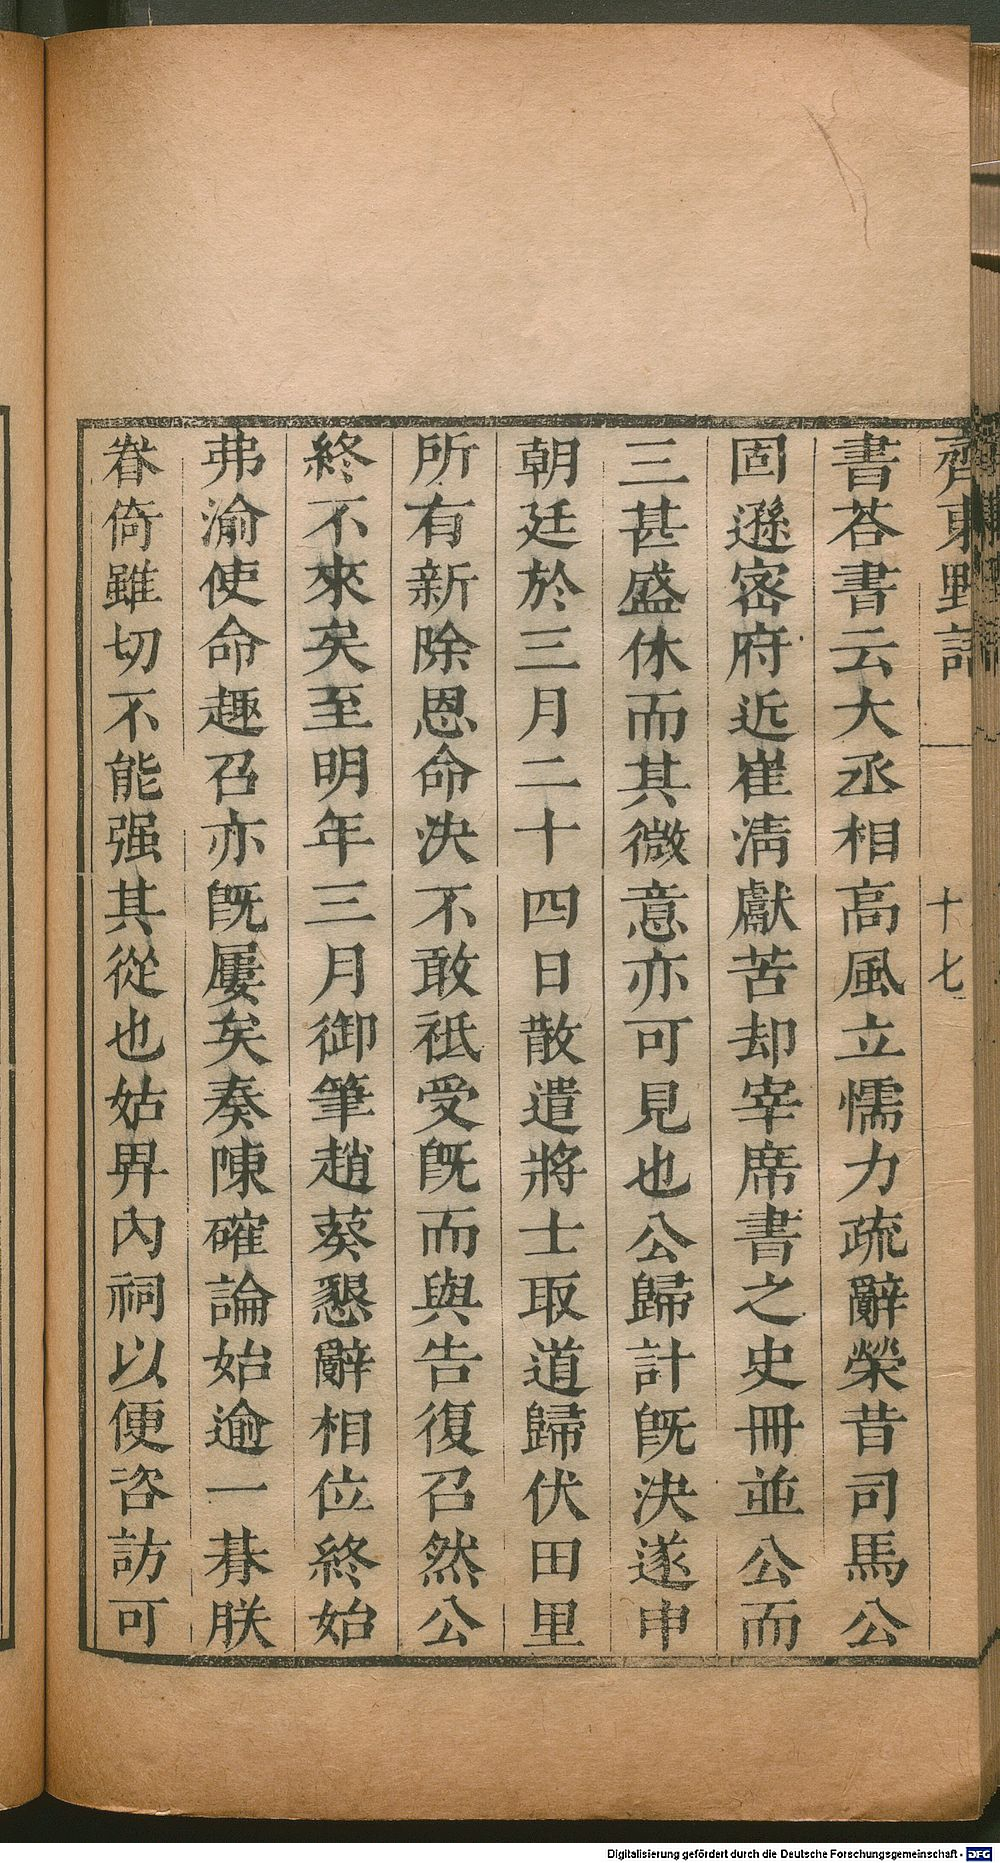 齊東野語
十七
書荅書云大丞相高風立懦力疏辭榮昔司馬公
固遜密府近崔淸獻苦却宰席書之史冊並公而
三甚盛休而其微意亦可見也公歸計旣決遂申
朝廷於三月二十四日散遣將士取道歸伏田里
所有新除恩命決不敢祗受旣而與告復召然公
終不來矣至明年三月御筆趙葵懇辭相位終始
弗渝使命趣召亦旣屢矣奏陳確論始逾一朞朕
眷倚雖切不能强其從也姑畀內祠以便咨訪可
Digitalisierung gefördert durch die Deutsche Forschungsgemeinschaft - DFG